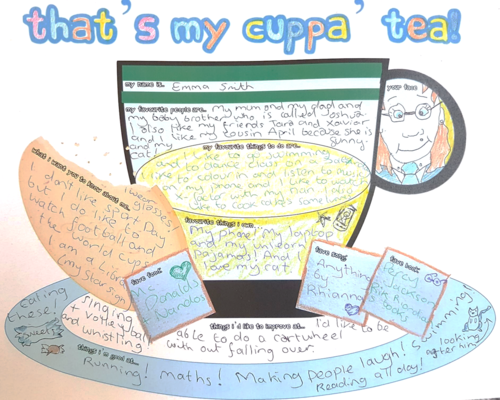 that's my cuppa' tea!
my name is... Emma Smith
your face
my favourite people are... My mum and my dad and
my baby brother who is called Joshua.
I also like my friends Tara and Xavior
and I like my cousin April because she is
funny.
and my
cat!
my favourite things to do are...
I like to go swimming
and to drama class on a
I like to colour and listen to music
on my phone and I like to watch
factor with my mum. I also
like to cook cakes some
what i want you to know about me...
I wear
glasses!
I don't like sport
but I do like to
watch
the football and
the world cup
I am a Libra
(my star sign)
favourite things i own
My phone! My laptop
and my unicorn
Pajamas! And I
love my cat!
fave food
McDonalds
+ Nandos
fave song
Anything
by
Rhianna
fave book
Percy
Jackson
Rick Riordan
things i'd like to improve at...
I'd like to be
able to do a cartwheel
with out falling over.
eating
these!
sweets
Singing
+ Volleyball
and whistling
things i'm good at...
Running! maths! Making people laugh! Swimming!
Reading all day!
looking
after him